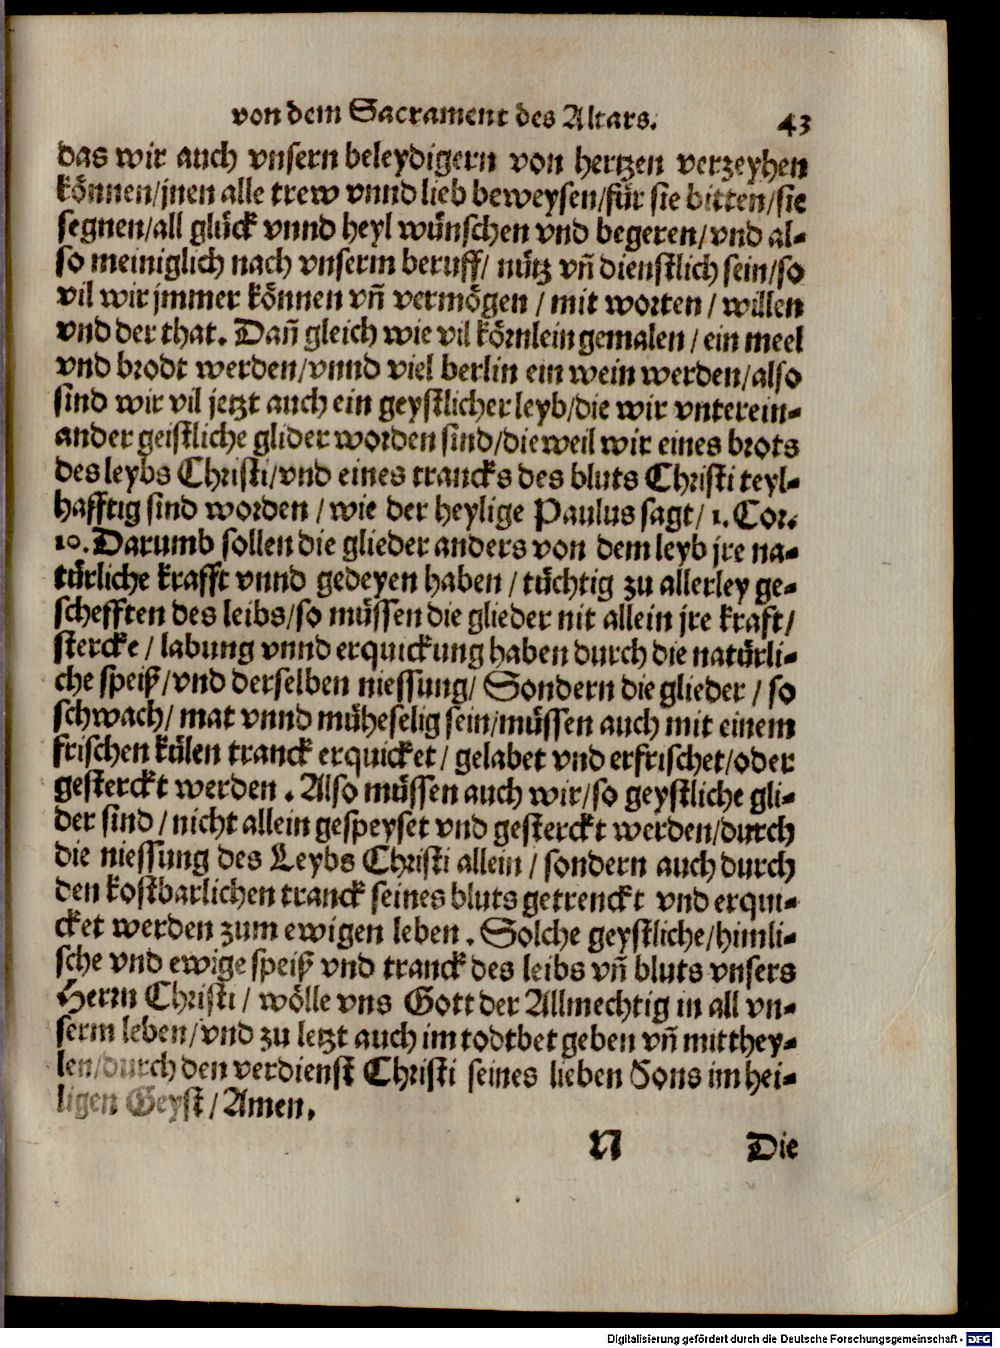 von dem Sacrament des Altars. 43
das wir auch vnsern beleydigern von hertzen verzeyhen
können/jnen alle trew vnnd lieb beweysen/für sie bitten/sie
segnen/all glück vnnd heyl wünschen vnd begeren/vnd al-
so meiniglich nach vnserm beruff/ nütz vñ dienstlich sein/so
vil wir jmmer können vñ vermögen / mit worten / willen
vnd der that. Dañ gleich wie vil körnlein gemalen / ein meel
vnd brodt werden/vnnd viel berlin ein wein werden/also
sind wir vil jetzt auch ein geystlicher leyb/die wir vnterein-
ander geistliche glider worden sind/dieweil wir eines brots
des leybs Christi/vnd eines trancks des bluts Christi teyl-
hafftig sind worden / wie der heylige Paulus sagt/ 1. Cor.
10. Darumb sollen die glieder anders von dem leyb jre na-
türliche krafft vnnd gedeyen haben / tüchtig zu allerley ge-
schefften des leibs/so müssen die glieder nit allein jre kraft/
stercke / labung vnnd erquickung haben durch die natürli-
che speiß/vnd derselben niessung/ Sondern die glieder / so
schwach/ mat vnnd müheselig sein/müssen auch mit einem
frischen külen tranck erquicket/ gelabet vnd erfrischet/oder
gesterckt werden . Also müssen auch wir/so geystliche gli-
der sind / nicht allein gespeyset vnd gesterckt werden/durch
die niessung des Leybs Christi allein / sondern auch durch
den kostbarlichen tranck seines bluts getrenckt vnd erqui-
cket werden zum ewigen leben . Solche geystliche/himli-
sche vnd ewige speiß vnd tranck des leibs vñ bluts vnsers
Herrn Christi / wölle vns Gott der Allmechtig in all vn-
serm leben/vnd zu letzt auch im todtbet geben vñ mitthey-
len/durch den verdienst Christi seines lieben Sons im hei-
ligen Geyst / Amen.
N Die
Digitalisierung gefördert durch die Deutsche Forschungsgemeinschaft - DFG